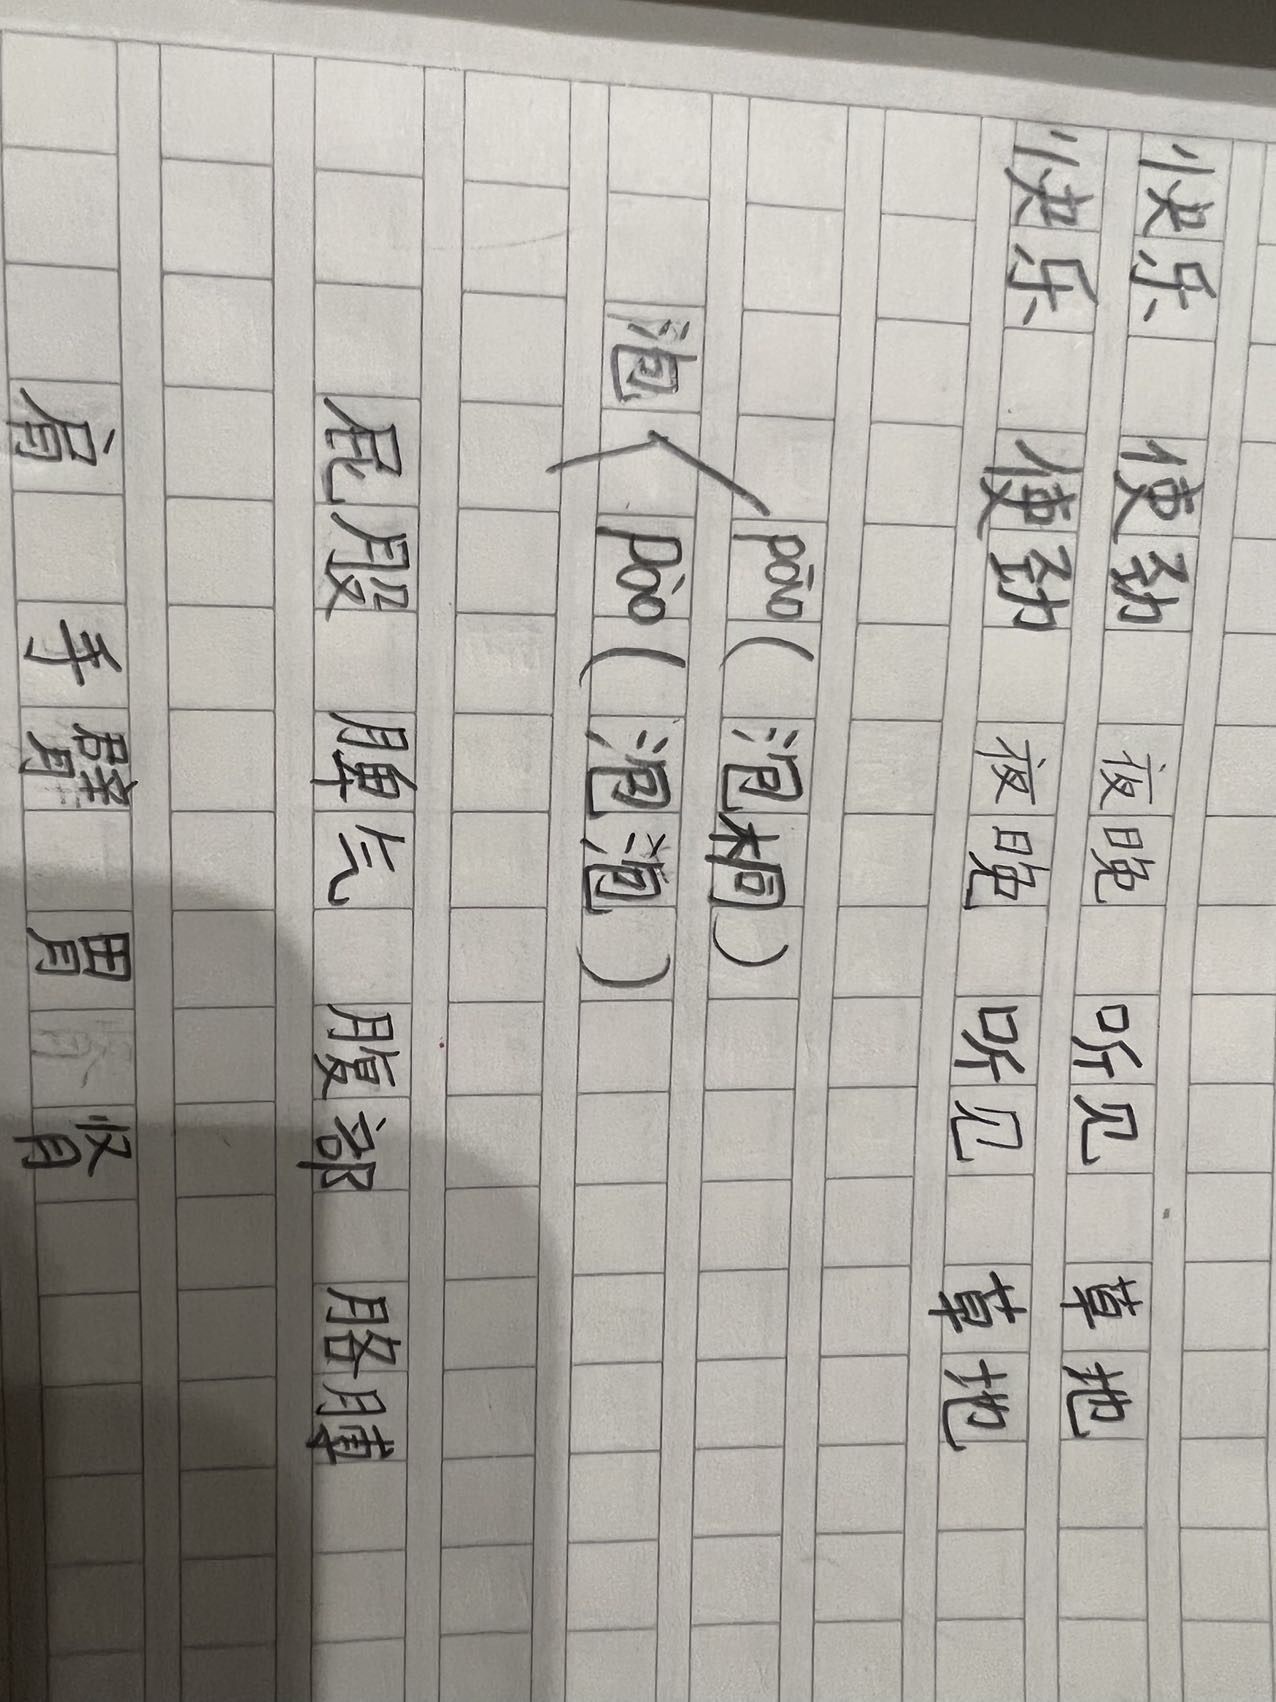 快乐 使劲 夜晚 听见 草地
快乐 使劲 夜晚 听见 草地
pāo（泡桐）
泡 pào（泡泡）
屁股 脾气 腹部 胳膊
肩 手臂 胃 肾